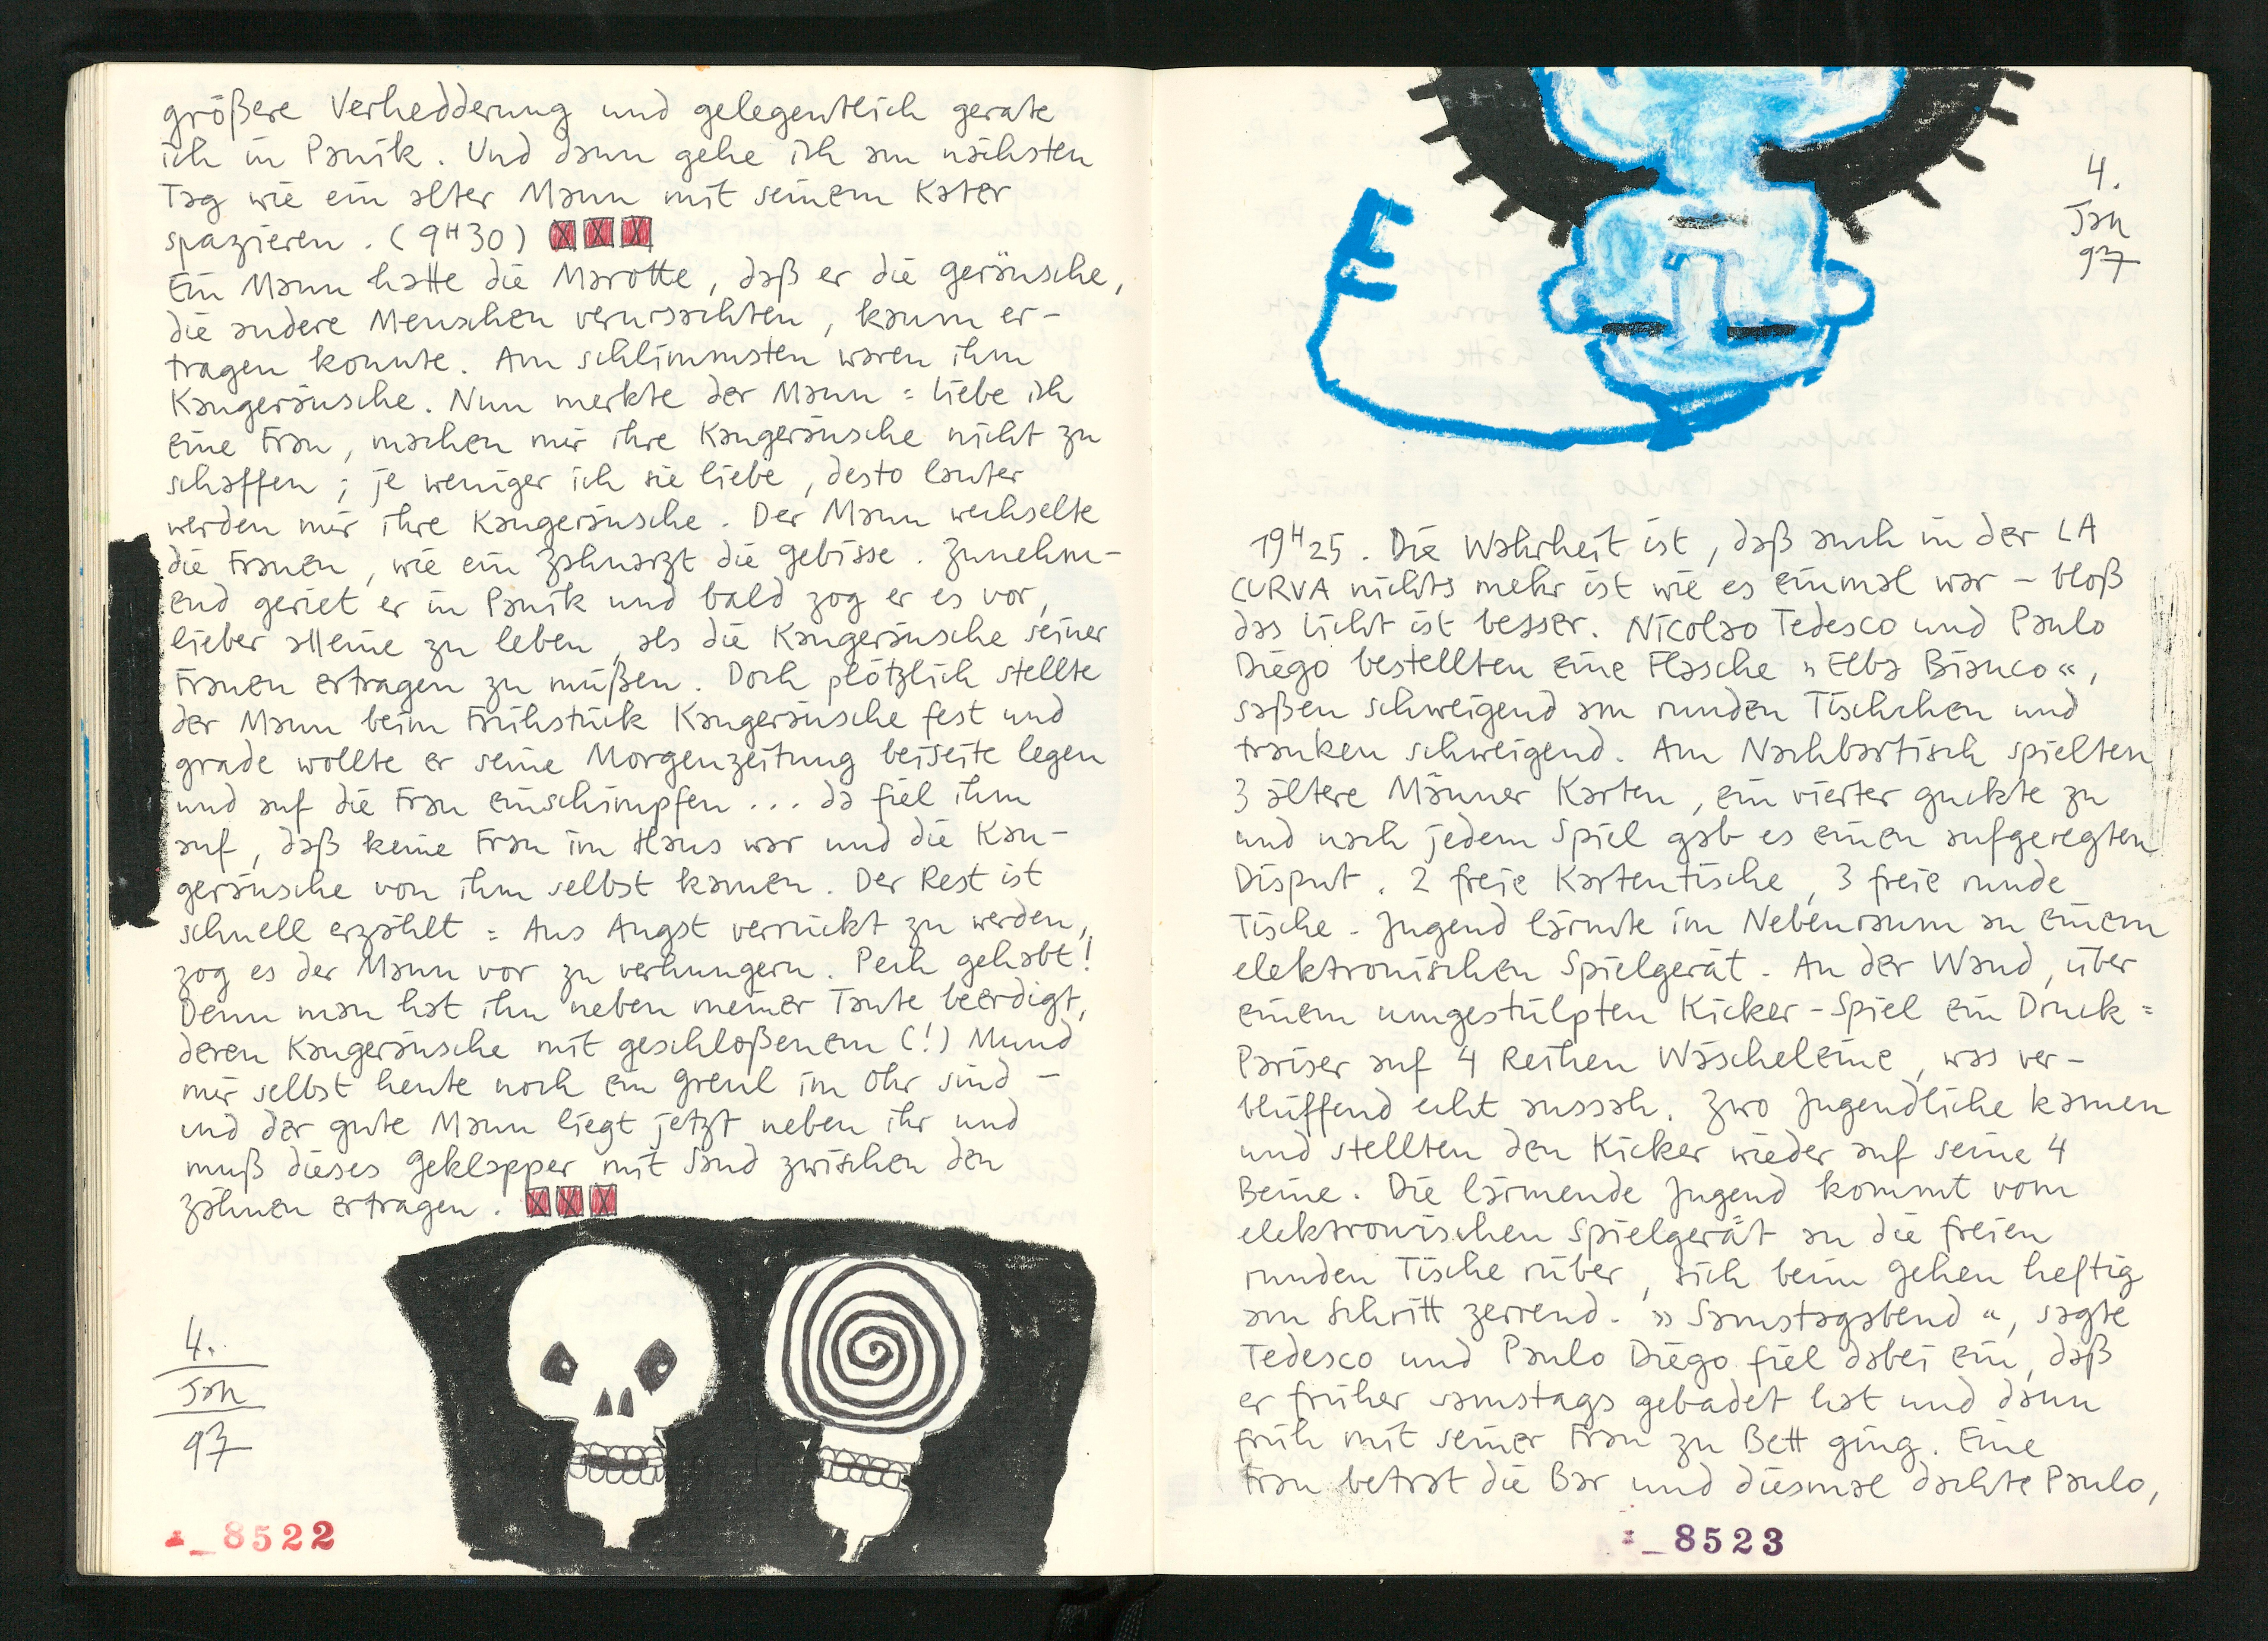 größere Verhedderung und gelegentlich gerate
ich in Panik. Und dann gehe ich am nächsten
Tag wie ein alter Mann mit seinem Kater
spazieren. (9H30) XXX
Ein Mann hatte die Marotte, daß er die geräusche,
die andere Menschen verursachten, kaum er-
tragen konnte. Am schlimmsten waren ihm
Kaugeräusche. Nun merkte der Mann = liebe ich
eine Frau, machen mir ihre Kaugeräusche nicht zu
schaffen; je weniger ich sie liebe, desto lauter
werden mir ihre Kaugeräusche. Der Mann wechselte
die Frauen, wie ein Zahnarzt die gebisse. Zunehm-
end geriet er in Panik und bald zog er es vor,
lieber alleine zu leben, als die Kaugeräusche seiner
Frauen ertragen zu müßen. Doch plötzlich stellte
der Mann beim Frühstück Kaugeräusche fest und
grade wollte er seine Morgenzeitung beiseite legen
und auf die Frau einschimpfen... da fiel ihm
auf, daß keine Frau im Haus war und die Kau-
geräusche von ihm selbst kamen. Der Rest ist
schnell erzählt = Aus Angst verrückt zu werden,
zog es der Mann vor zu verhungern. Pech gehabt!
Denn man hat ihn neben meiner Tante beerdigt,
deren Kaugeräusche mit geschloßenem (!) Mund
mir selbst heute noch ein greul im Ohr sind –
und der gute Mann liegt jetzt neben ihr und
muß dieses geklapper mit Sand zwischen den
zähnen ertragen. XXX
4.
Jan
97
_8522
4.
Jan
97
19H25. Die Wahrheit ist, daß auch in der LA
CURVA nichts mehr ist wie es einmal war – bloß
das Licht ist besser. Nicolao Tedesco und Paulo
Diego bestellten eine Flasche »Elba Bianco«,
saßen schweigend am runden Tischchen und
tranken schweigend. Am Nachbartisch spielten
3 ältere Männer Karten, ein vierter guckte zu
und nach jedem Spiel gab es einen aufgeregten
Disput. 2 freie Kartentische, 3 freie runde
Tische. Jugend lärmte im Nebenraum an einem
elektronischen Spielgerät. An der Wand, über
einem umgestülpten Kicker-Spiel ein Druck=
Pariser auf 4 Reihen Wäscheleine, was ver-
blüffend echt aussah. Zwo Jugendliche kamen
und stellten den Kicker wieder auf seine 4
Beine. Die lärmende Jugend kommt vom
elektronischen Spielgerät an die freien
runden Tische rüber, sich beim gehen heftig
am Schritt zerrend. »Samstagabend«, sagte
Tedesco und Paulo Diego fiel dabei ein, daß
er früher samstags gebadet hat und dann
früh mit seiner Frau zu Bett ging. Eine
Frau betrat die Bar und diesmal dachte Paulo,
_8523